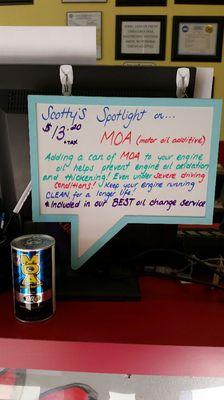 Scotty's Spotlight on...
$13.20
+TAX
MOA (motor oil additive)
Adding a can of MOA to your engine
oil helps prevent engine oil oxidation
and thickening! Even under severe driving
conditions! Keep your engine running
CLEAN for a longer life!
* Included in our BEST oil change service
MOA